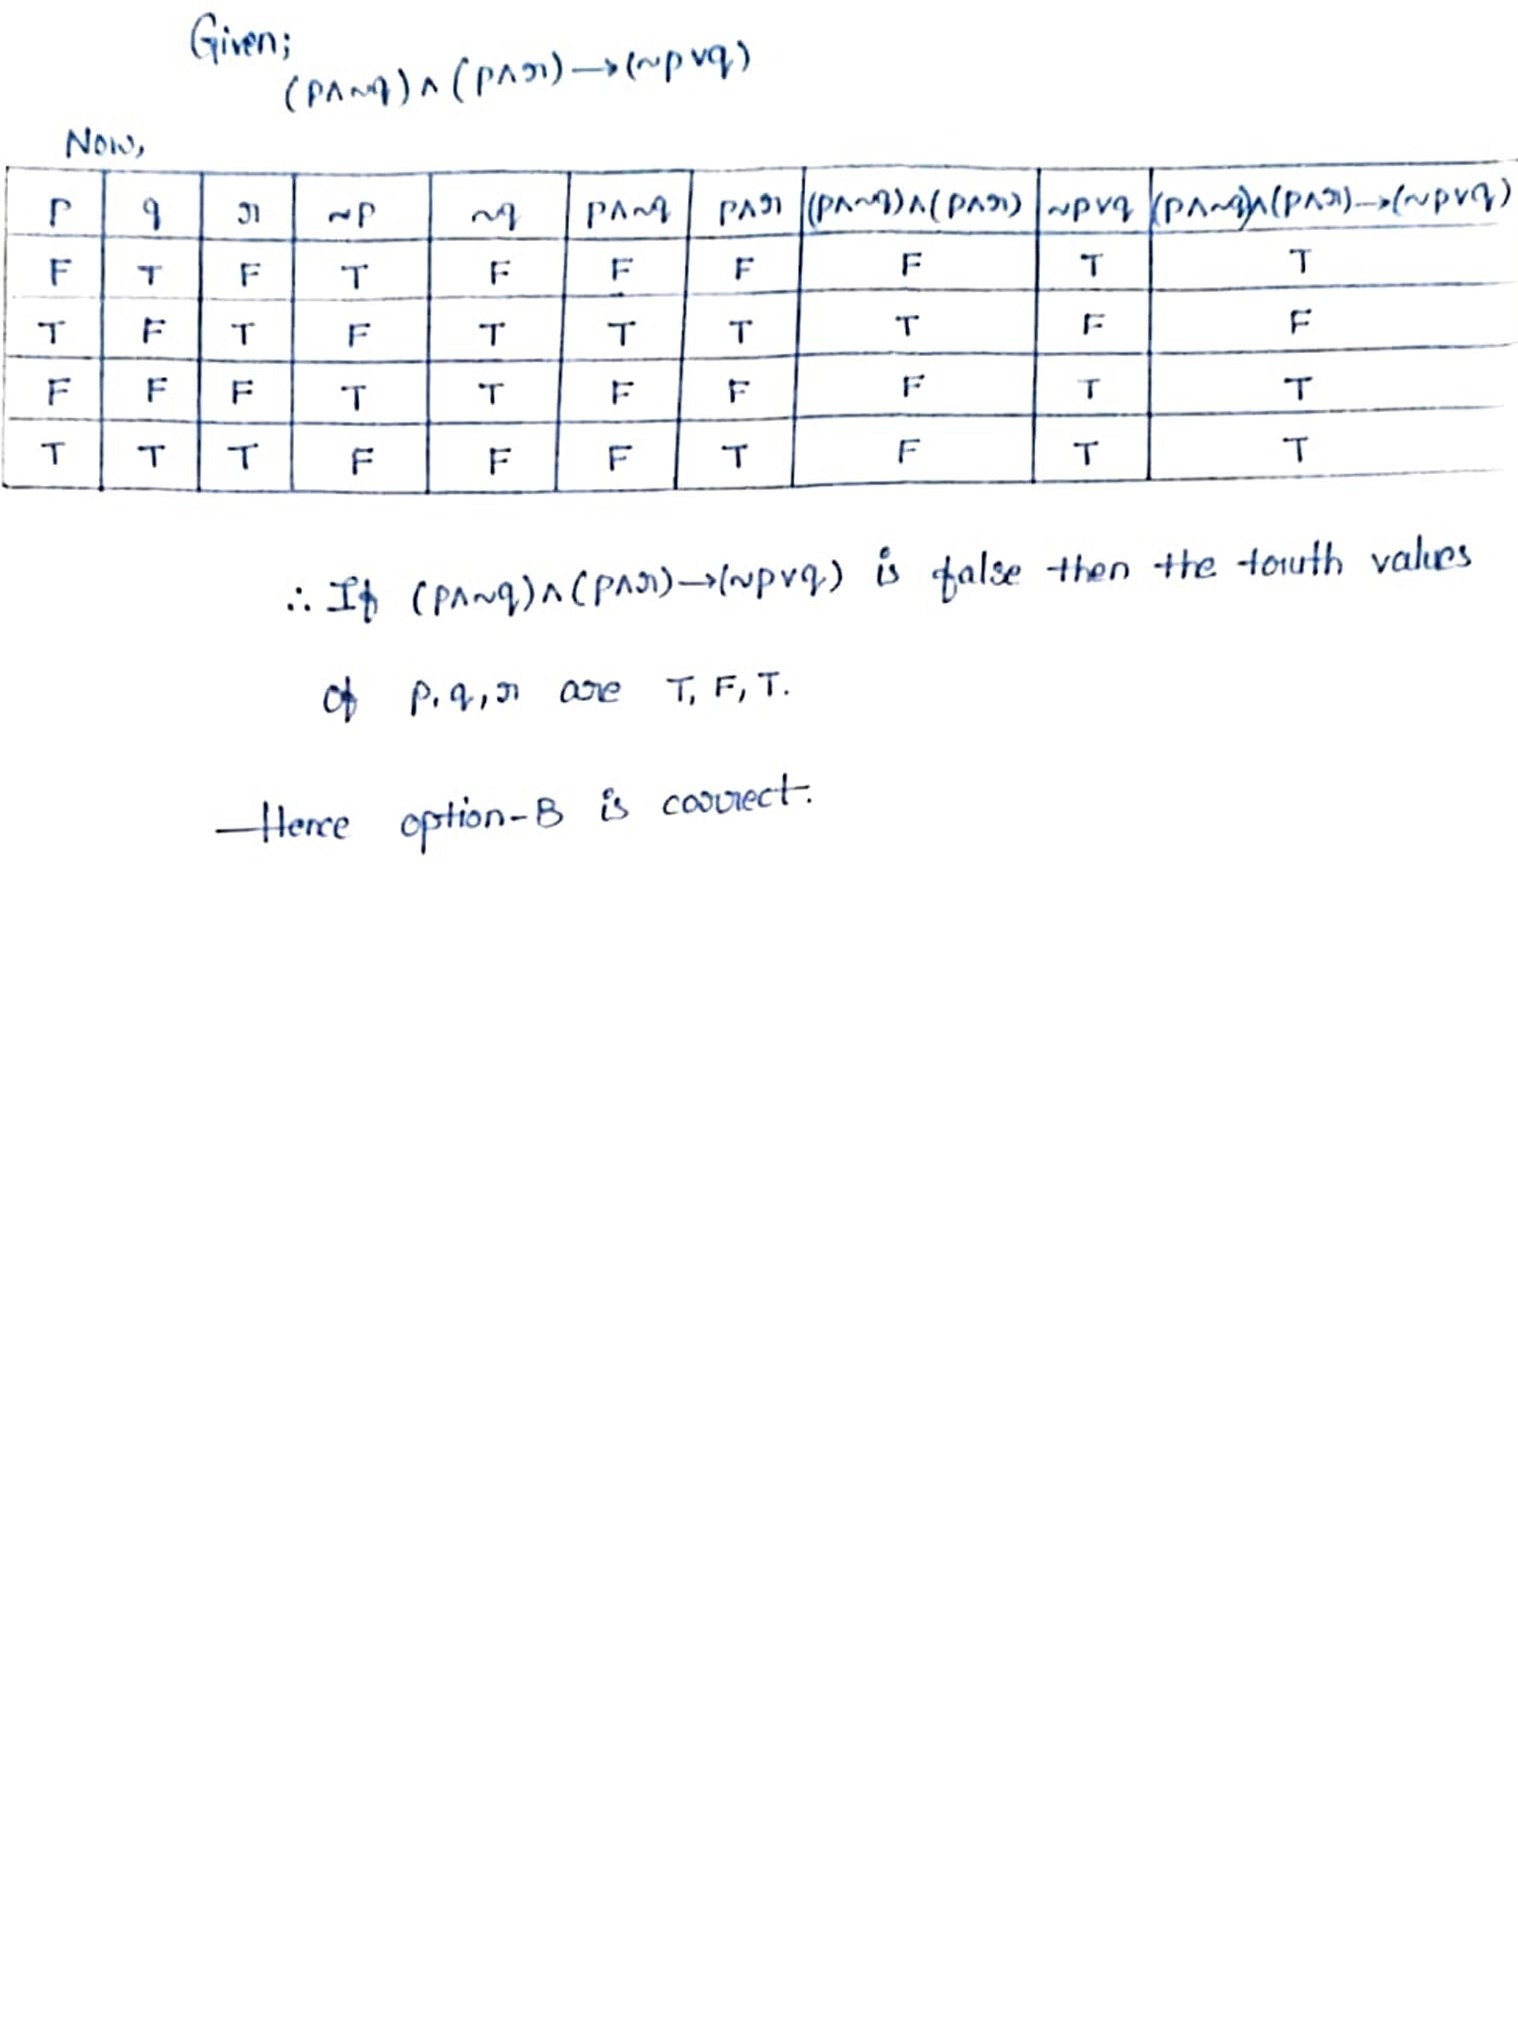 Given;
(p∧~q)∧(p∧r)→(~p∨q)
Now,
p q r ~p ~q p∧~q p∧r (p∧~q)∧(p∧r) ~p∨q (p∧~q)∧(p∧r)→(~p∨q)
F T F T F F F F T T
T F T F T T T T F F
F F F T T F F F T T
T T T F F F T F T T
∴ If (p∧~q)∧(p∧r)→(~p∨q) is false then the truth values
of p,q,r are T, F, T.
Hence option-B is correct.